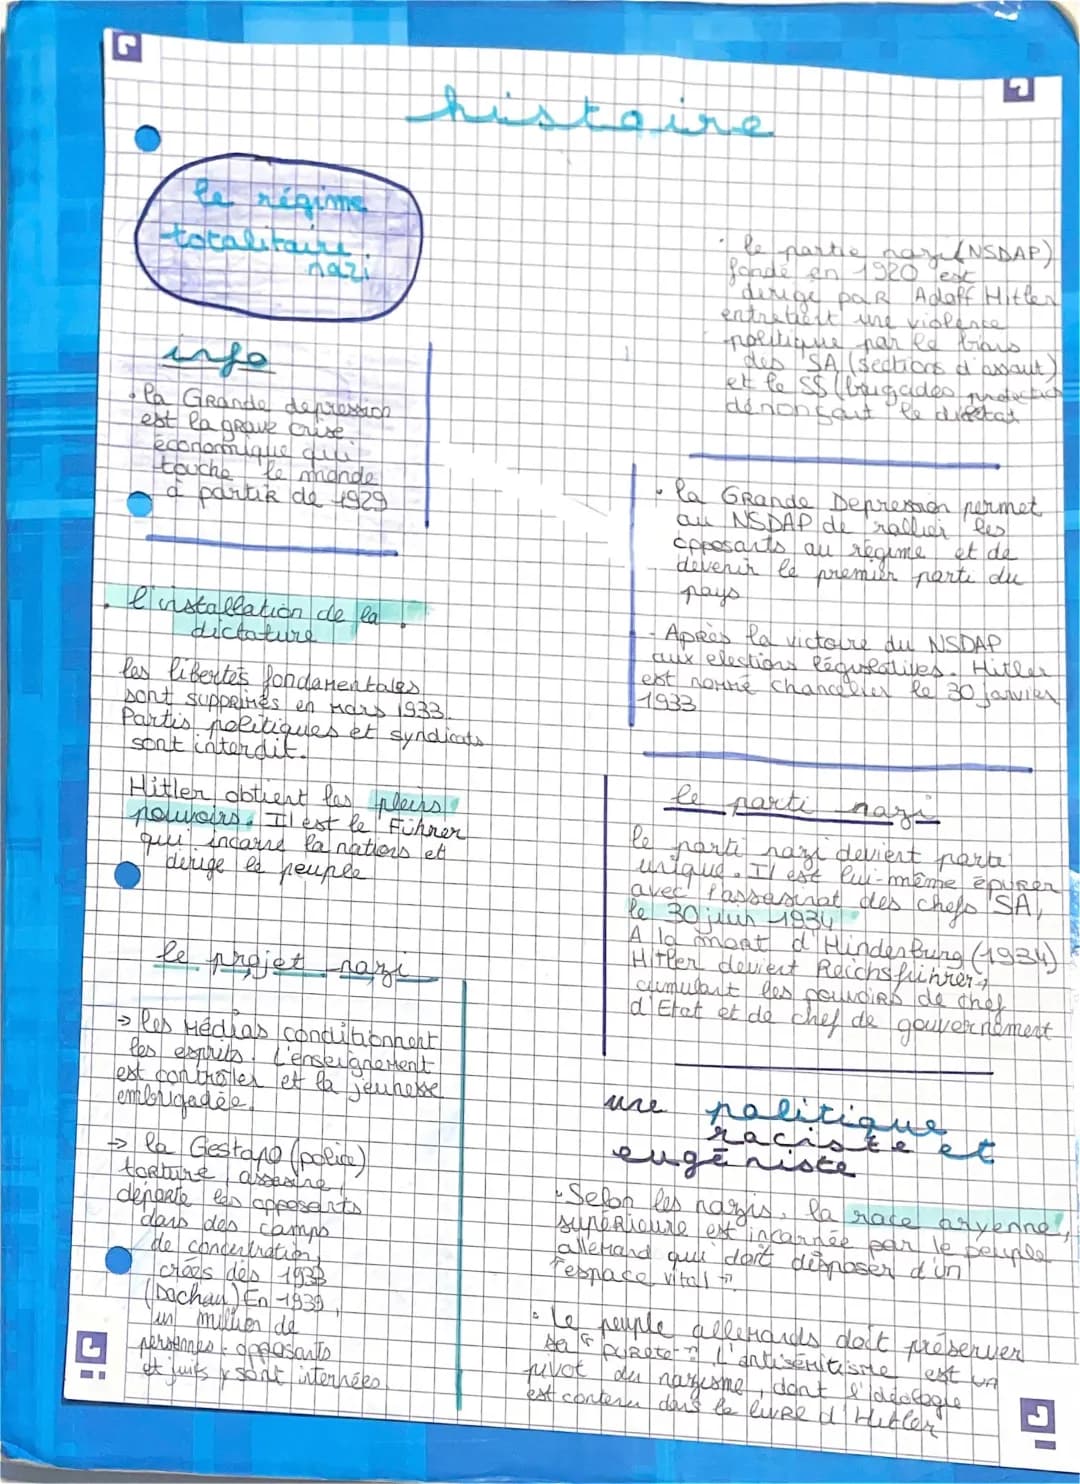 histoire
le régime
totalitaire
nazi
info
• la GRande depression
est la gRave crise
économique qui
touche le monde
à partiR de 1929
• le partie nazi (NSDAP)
fondé en 1920 est
dirigé paR Adolf Hitler
entretient une violence
politique par le biais
des SA (sections d'assaut)
et le SS (brigades protection
dénonçant le diktat
• la GRande Depression permet
au NSDAP de rallier les
opposants au régime et de
devenir le premier parti du
pays
- Après la victoire du NSDAP
aux elections législatives. Hitler
est nommé Chancelier le 30 janvier
1933
• l'installation de la
dictature
les libertés fondamentales
sont suppRimés en mars 1933.
Partis politiques et syndicats
sont interdit.
Hitler obtient les pleins
pouvoirs. Il est le Führer
qui incarne la nations et
dirige le peuple
le parti nazi
le parti nazi devient parti
unique. Il est lui-même épurer
avec l'assasinat des chefs SA,
le 30 juin 1934
A la moRt d'Hindenburg (1934)
Hitler devient Reichsführer,
cumulant les pouvoiRs de chef
d'Etat et de chef de gouvernement
le projet nazi
→ les Médias conditionnent
les esprits. L'enseignement
est contrôler et la jeunesse
embrigadée.
→ la Gestapo (police)
torture, assasine,
déporte les opposants
dans des camps
de concentration,
crées dès 1933
(Dachau) En 1939,
un million de
personnes, opposants
et juifs y sont internées
une politique
raciste et
eugéniste
• Selon les nazis, la race aryenne,
supéRieure est incarnée par le peuple
allemand qui doit disposer d'un
"espace vital"
• Le peuple allemands doit préserver
sa "puReté" L'antisémitisme est un
pivot du nazisme, dont l'idéologie
est contenu dans le livRe d'Hitler